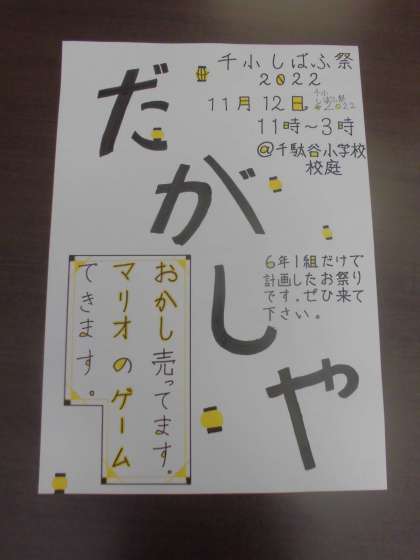 千小しばふ祭
2022
11月12日
千小
しばふ祭
2022
11時〜3時
@千駄谷小学校
校庭
だがしや
6年1組だけで
計画したお祭り
です。ぜひ来て
下さい。
おかし売ってます。
マリオのゲーム
できます。